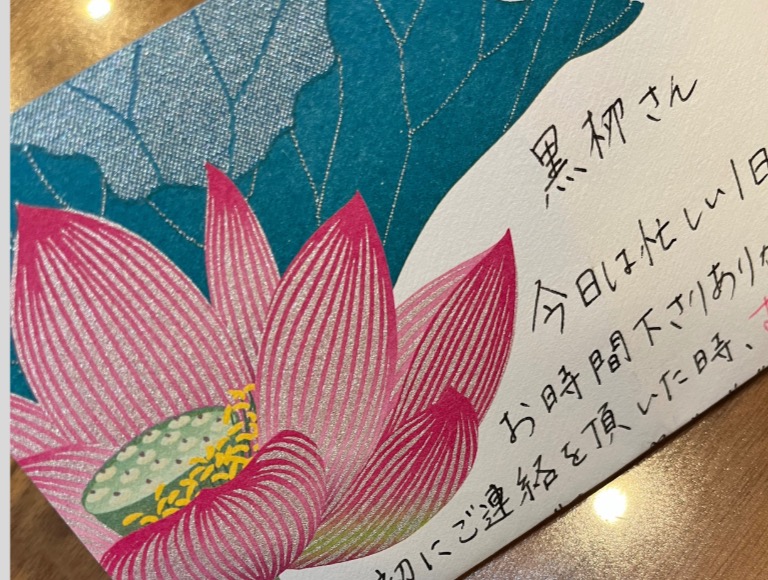 黒栁さん
今日は忙しい1日
お時間下さりあり
初にご連絡を頂いた時、